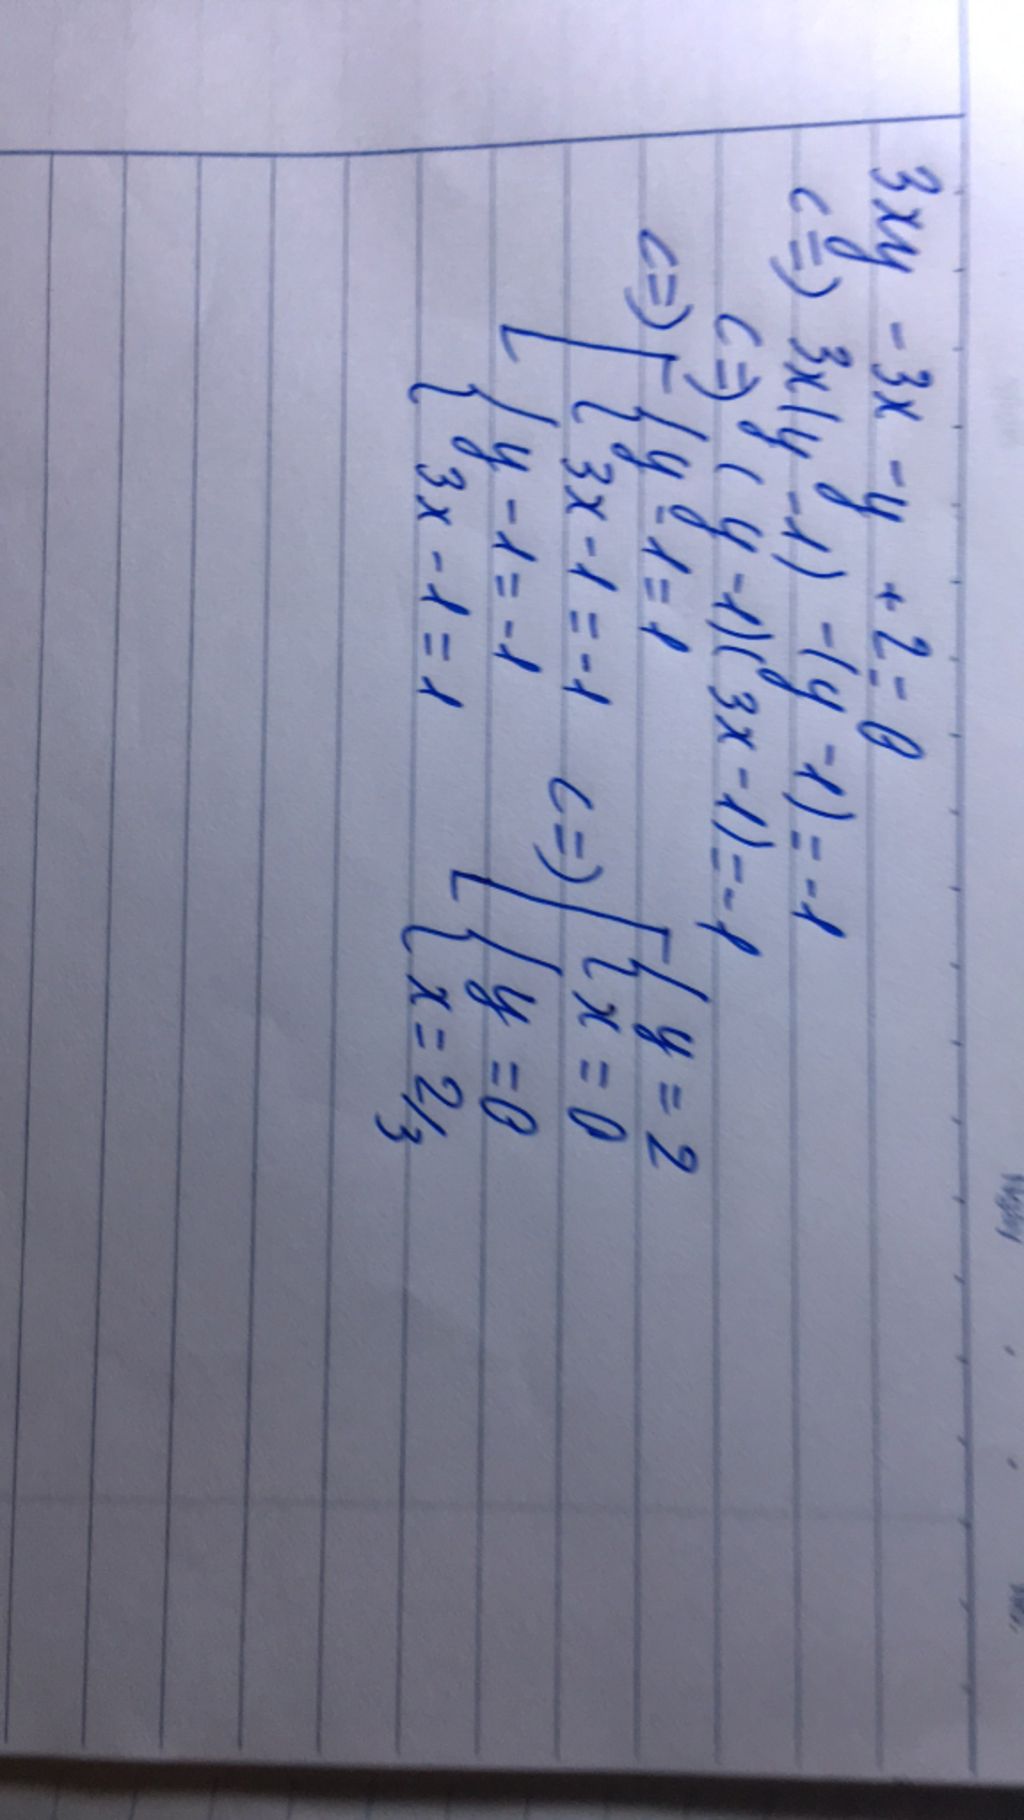 3xy - 3x - y + 2 = 0
<=> 3x(y-1) - (y-1) = -1
<=> (y-1)(3x-1) = -1
<=> [ { y-1 = 1
3x-1 = -1
{ y-1 = -1
3x-1 = 1
<=> [ { y = 2
x = 0
{ y = 0
x = 2/3
Ngày